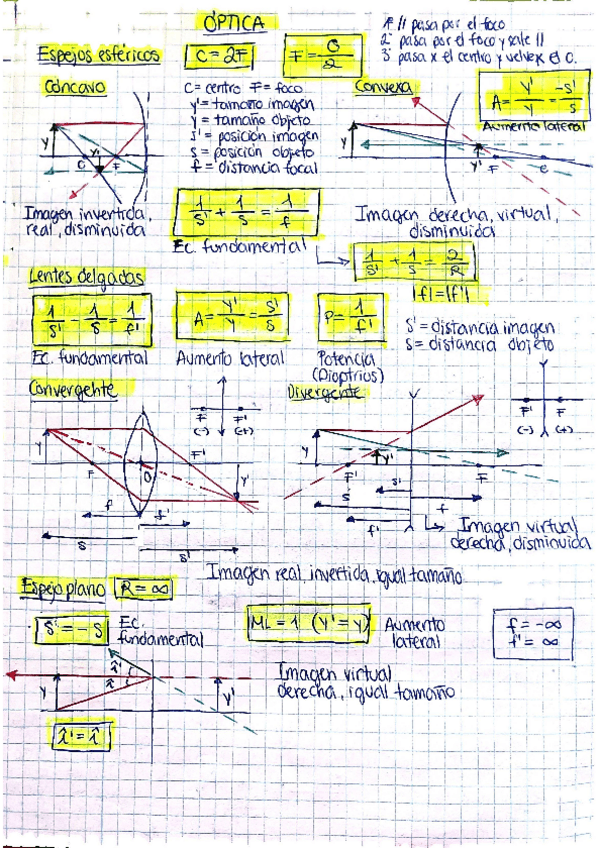 ÓPTICA
1º // pasa por el foco
2º pasa por el foco y sale //
3º pasa x el centro y vuelve x el C.
Espejos esféricos
C = 2F
F = C/2
Cóncavo
C = centro F = foco
y' = tamaño imagen
y = tamaño objeto
s' = posición imagen
s = posición objeto
f = distancia focal
Convexa
A = y'/y = -s'/s
Aumento lateral
y
C
y'
F
y
y'
F
C
Imagen invertida,
real, disminuida
1/s' + 1/s = 1/f
Ec. fundamental
Imagen derecha, virtual,
disminuida
1/s' + 1/s = 2/R
|f|=|f'|
Lentes delgadas
1/s' - 1/s = 1/f'
Ec. fundamental
A = y'/y = s'/s
Aumento lateral
P = 1/f'
Potencia
(Dioptrios)
s' = distancia imagen
s = distancia objeto
Convergente
F F'
(-) (+)
Divergente
F' F
(-) (+)
y
F
O
F'
y'
f
f'
s
s'
y
F'
y'
F
s'
s
f
f'
Imagen virtual
derecha, disminuida
Imagen real, invertida, igual tamaño
Espejo plano
R = ∞
s' = -s
Ec.
fundamental
ML = 1 (y' = y)
Aumento
lateral
f = -∞
f' = ∞
î'
î
y
y'
Imagen virtual
derecha, igual tamaño
î' = î